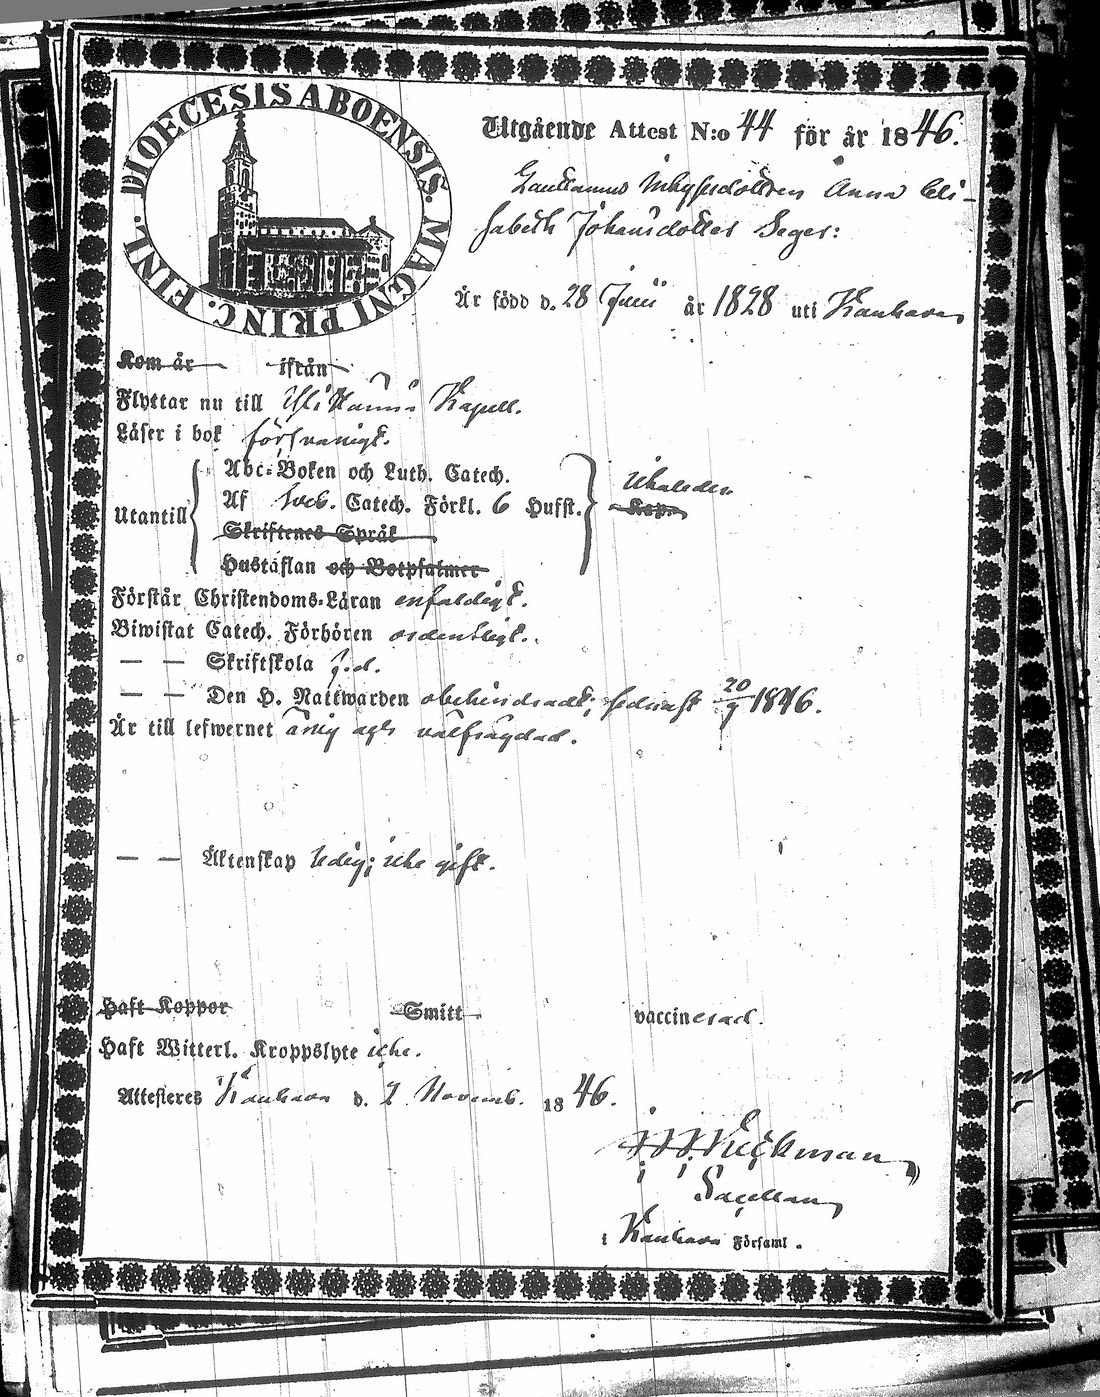 DIOECESIS ABOENSIS. MAGNI PRINC. FINL.
Utgående Attest N:o 44 för år 1846.
Inhysesdottren Anna Eli-
sabeth Johansdotter Seger:
Är född d. 28 Junii år 1828 uti Kauhava,
Kom år ifrån
Flyttar nu till Yli Kapell.
Läser i bok försvarligt.
Abc-Boken och Luth. Catech.
Utantill Af Sveb. Catech. Förkl. 6 Hufst.
Skriftenes Språk
Hustaflan och Botpsalmer
Förstår Christendoms-Läran enfaldigt.
Biwistat Catech. Förhören ordentligt.
— — Skriftskola
— — Den H. Nattwarden obehindradt; sednast 20/9 1846.
Är till lefwernet ärlig och välfrägdad.
— — Äktenskap ledig; icke gift.
Haft Koppor Smitt vaccinerad.
Haft Witterl. Kroppslyte icke.
Attesteres Kauhava d. 2 Novemb. 1846.
Capellan,
i Kauhava Församl.